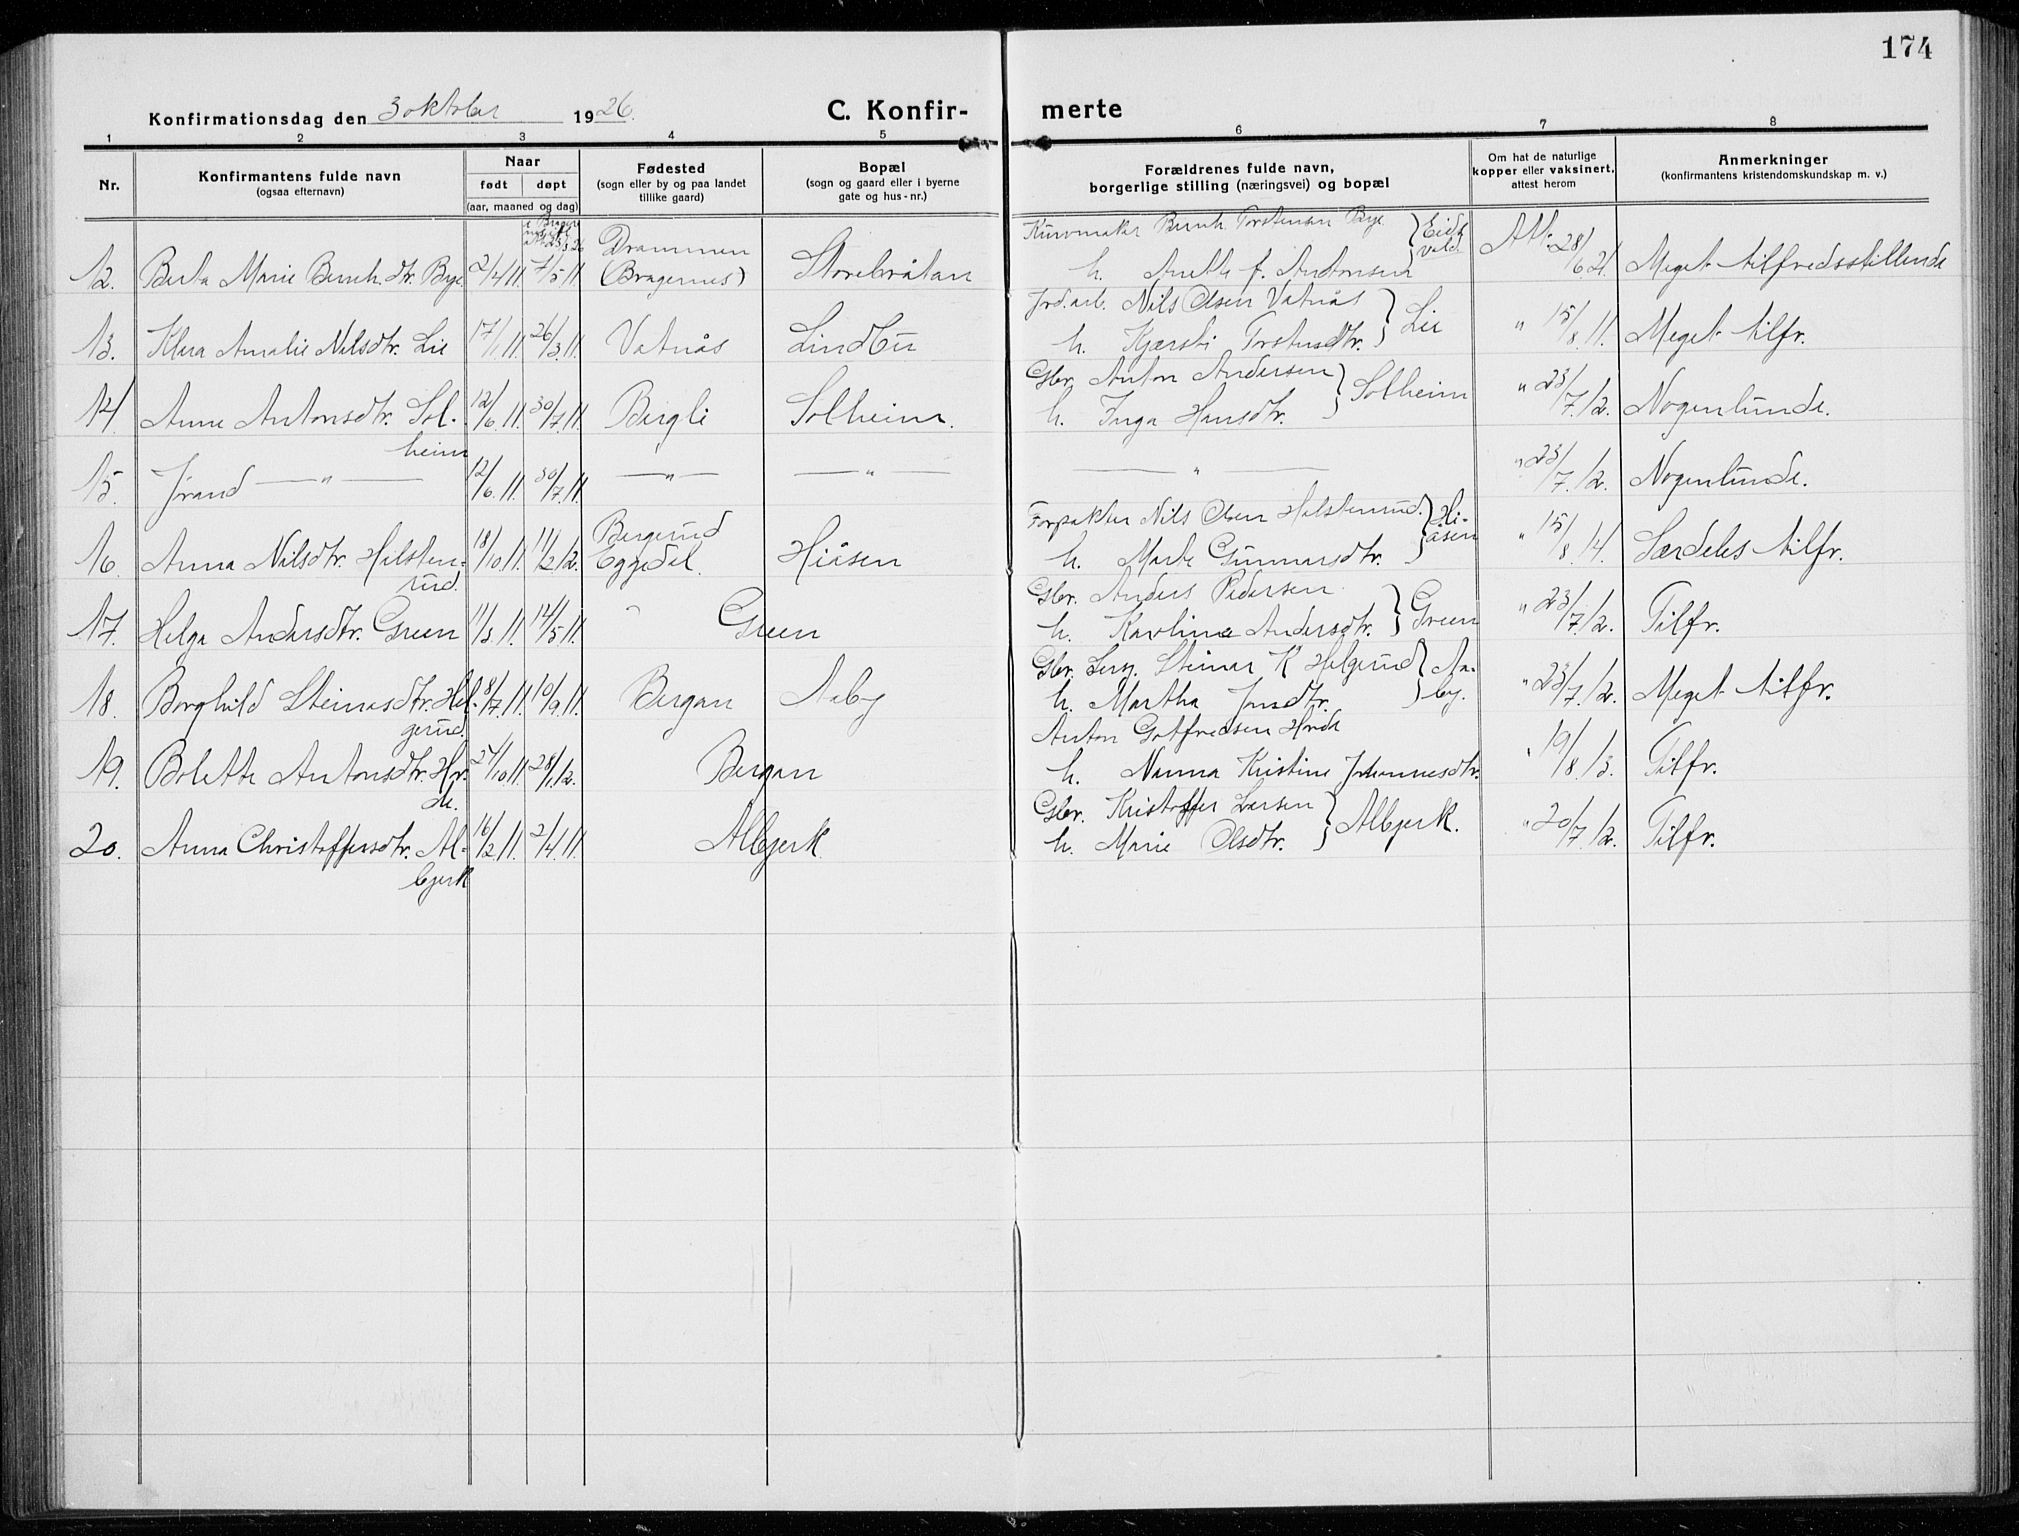 174
Konfirmationsdag den 3 oktober 1926.
C. Konfir- merte
1 2 3 4 5 6 7 8
Nr.
Konfirmantens fulde navn
(ogsaa efternavn)
Naar
født døpt
(aar, maaned og dag)
Fødested
(sogn eller by og paa landet
tillike gaard)
Bopæl
(sogn og gaard eller i byerne
gate og hus-nr.)
Forældrenes fulde navn,
borgerlige stilling (næringsvei) og bopæl
Om hat de naturlige
kopper eller vaksinert,
attest herom
Anmerkninger
(konfirmantens kristendomskundskap m. v.)
Kurvmaker Bernh. Torstensen Bye } Eidsvold
12. Berta Marie Bernh.dtr. Bye 2/4 11. 7/5 11 Drammen (Bragernes) Storebråtan
h. Anette f. Antonsen Att. 28/6 21. Meget tilfredsstillende
Jord.arb. Nils Olsen Vatnås } Lie
13. Klara Amalie Nilsdtr. Lie 17/1 11. 26/3 11. Vatnås Lindbu
h. Kjersti Torstensdtr. " 15/8 11. Meget tilfr.
Gbr. Anton Andersen } Solheim
14 Anne Antonsdtr. Sol- 12/6 11. 30/7 11. Bergli Solheim.
h. Inga Hansdtr. " 23/7. 12. Nogenlunde.
heim
15. Jørand — " — 12/6. 11. 30/7. 11. — " — — " — — " — " 23/7. 12. Nogenlunde.
Forpakter Nils Olsen Halstenrud. } Hiåsen
16. Anna Nilsdtr. Halsten- 18/10. 11. 11/2 12. Bergerud Eggedal Hiåsen
h. Marte Gunnarsdtr. " 15/8. 14. Særdeles tilfr.
rud.
Gbr. Anders Pedersen } Green
17. Helga Andersdtr. Green 11/3 11. 14/5 11. " Green
h. Karoline Andersdtr. " 23/7. 12. Tilfr.
Gbr. Steinar K Helgerud } Aaby.
18. Borghild Steinarsdtr. Hel- 8/7. 11. 10/9. 11. Bergan Aaby
h. Martha Jonsdtr. " 23/7. 12. Meget tilfr.
gerud.
Anton Gotfredsen Horde
19. Bolette Antonsdtr. Hor- 24/10 11. 28/1 12. Bergan
h. Nanna Kristine Johannesdtr. " 19/8. 13. Tilfr.
de.
Gbr. Kristoffer Larsen } Albjerk.
20. Anna Christoffersdtr. Al- 16/2 11. 2/4 11. Albjerk
h. Marie Olsdtr. " 20/7. 12. Tilfr.
bjerk